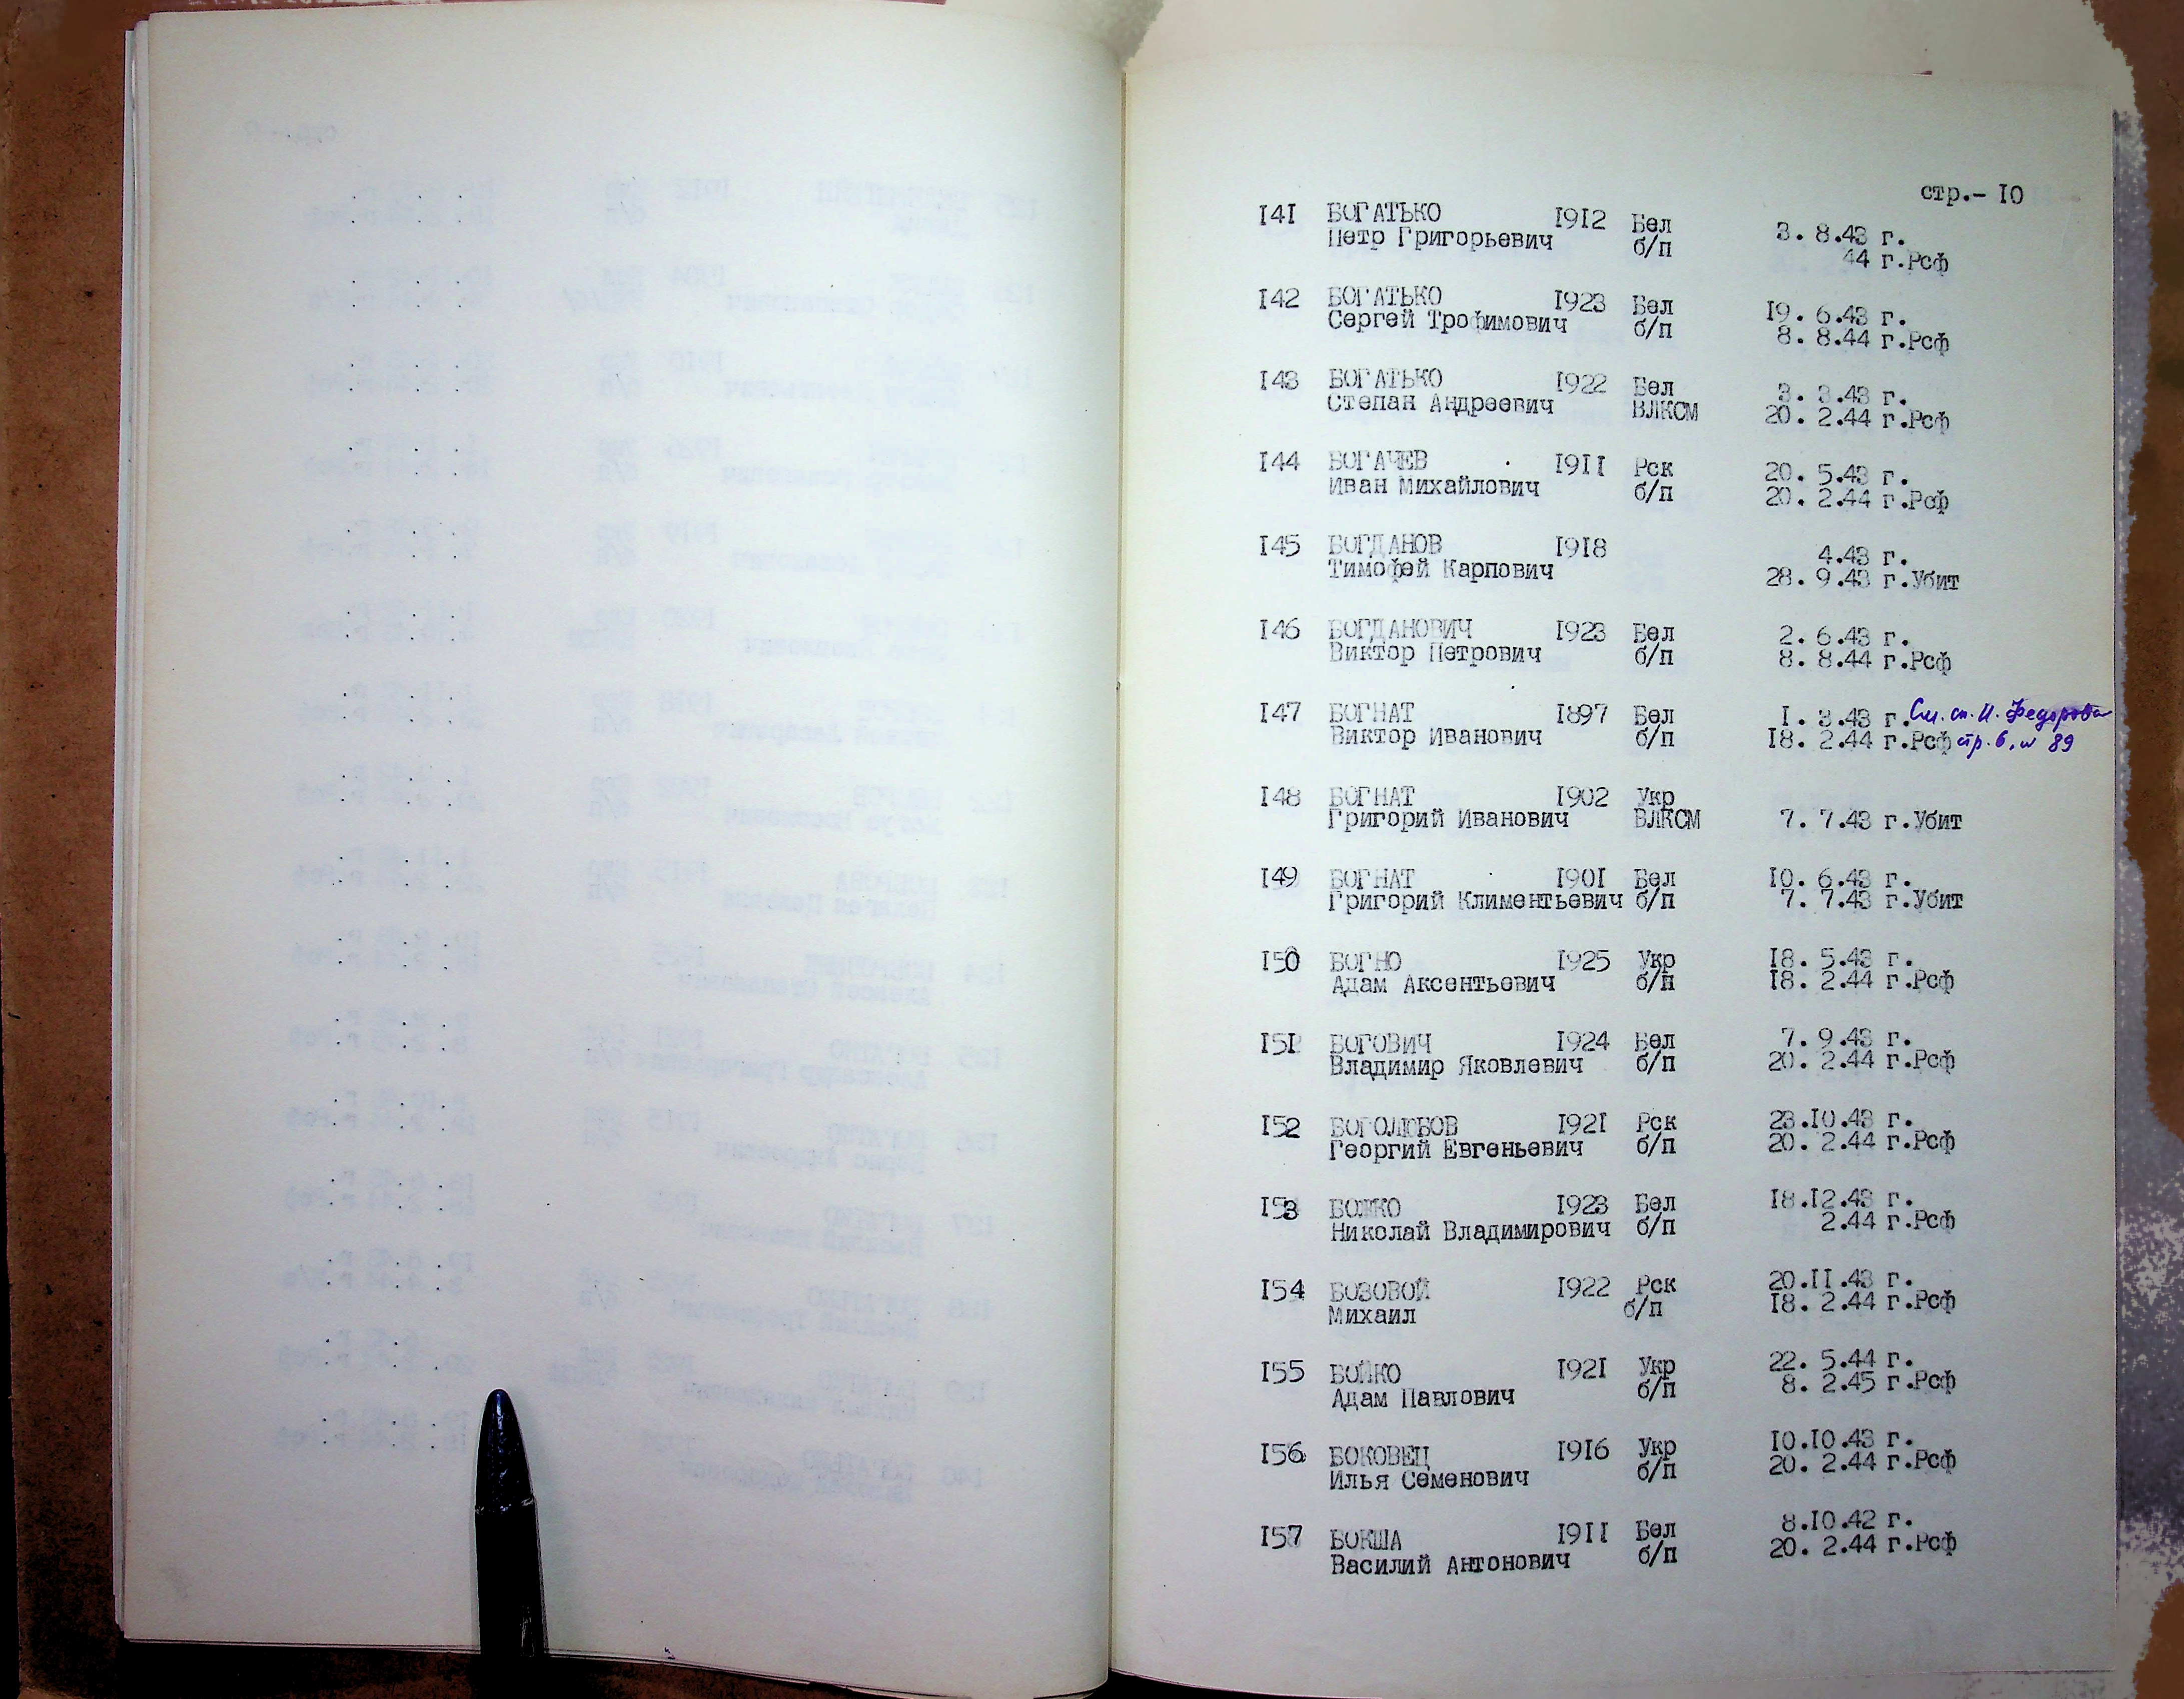 стр.- I0
I4I БОГАТЬКО I9I2 Бел 3. 8.43 г.
Петр Григорьевич б/п 44 г.Рсф
I42 БОГАТЬКО I923 Бел I9. 6.43 г.
Сергей Трофимович б/п 8. 8.44 г.Рсф
I43 БОГАТЬКО I922 Бел 3. 3.43 г.
Степан Андреевич ВЛКСМ 20. 2.44 г.Рсф
I44 БОГАЧЕВ I9II Рск 20. 5.43 г.
Иван Михайлович б/п 20. 2.44 г.Рсф
I45 БОГДАНОВ I9I8 4.43 г.
Тимофей Карпович 28. 9.43 г.Убит
I46 БОГДАНОВИЧ I923 Бел 2. 6.43 г.
Виктор Петрович б/п 8. 8.44 г.Рсф
I47 БОГНАТ I897 Бел I. 3.43 г. См. сп. И. Федорова
Виктор Иванович б/п I8. 2.44 г.Рсф стр. 6, № 89
I48 БОГНАТ I902 Укр
Григорий Иванович ВЛКСМ 7. 7.43 г.Убит
I49 БОГНАТ I90I Бел I0. 6.43 г.
Григорий Климентьевич б/п 7. 7.43 г.Убит
I50 БОГНО I925 Укр I8. 5.43 г.
Адам Аксентьевич б/п I8. 2.44 г.Рсф
I5I БОГОВИЧ I924 Бел 7. 9.43 г.
Владимир Яковлевич б/п 20. 2.44 г.Рсф
I52 БОГОЛЮБОВ I92I Рск 23.I0.43 г.
Георгий Евгеньевич б/п 20. 2.44 г.Рсф
I53 БОЖКО I923 Бел I8.I2.43 г.
Николай Владимирович б/п 2.44 г.Рсф
I54 БОЗОВОЙ I922 Рск 20.II.43 г.
Михаил б/п I8. 2.44 г.Рсф
I55 БОЙКО I92I Укр 22. 5.44 г.
Адам Павлович б/п 8. 2.45 г.Рсф
I56 БОКОВЕЦ I9I6 Укр I0.I0.43 г.
Илья Семенович б/п 20. 2.44 г.Рсф
I57 БОКША I9II Бел 8.I0.42 г.
Василий Антонович б/п 20. 2.44 г.Рсф